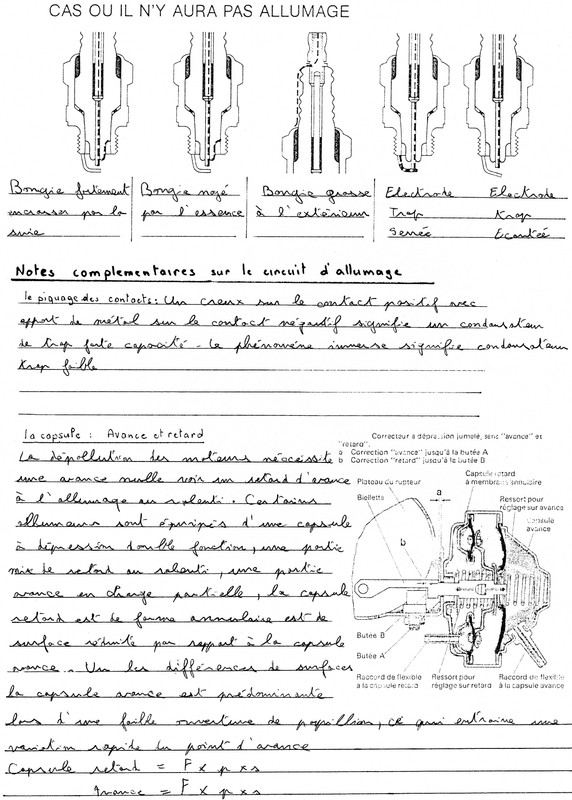 CAS OU IL N'Y AURA PAS ALLUMAGE
Bougie fortement
encrasser par la
suie
Bougie noyé
par l'essence
Bougie grasse
à l'extérieur
Electrode
Trop
Serrée
Electrode
trop
Ecartée
Notes complementaires sur le circuit d'allumage
le piquage des contacts : Un creux sur le contact positif avec
apport de métal sur le contact négatif signifie un condensateur
de trop forte capacité - le phénomène inverse signifie condensateur
trop faible
la capsule : Avance et retard
La dépollution des moteurs nécessite
une avance nulle voir un retard d'avance
à l'allumage au ralenti. Certains
allumeurs sont équipés d'une capsule
à dépression double fonction, une partie
mix de retard au ralenti, une partie
avance en charge partielle, la capsule
retard est de forme annulaire est de
surface réduite par rapport à la capsule
avance. Vu les différences de surfaces
la capsule avance est prédominante
lors d'une faible ouverture de papillion, ce qui entraine une
variation rapide du point d'avance
Capsule retard = F x p x s
Avance = F x p x s
Correcteur à dépression jumelé, sens "avance" et
"retard".
a Correction "avance" jusqu'à la butée A
b Correction "retard" jusqu'à la butée B
Plateau du rupteur
Biellette
Capsule retard
à membrane annulaire
Ressort pour
réglage sur avance
Capsule
avance
a
b
Butée B
Butée A
Raccord de flexible
à la capsule retard
Ressort pour
réglage sur retard
Raccord de flexible
à la capsule avance